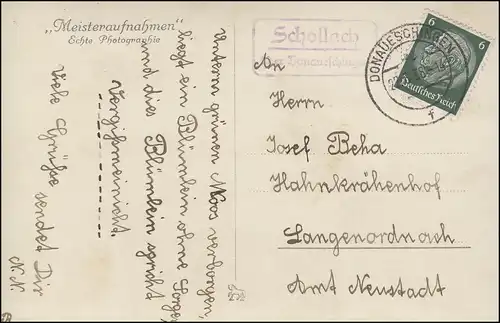 „Meisteraufnahmen"
Echte Photographie
Unterm grünen Moos verborgen,
liegt ein Blümlein ohne Sorgen
und dies Blümlein spricht
Vergißmeinicht.
Viele Grüße sendet Dir
N.N.
Schollach
über Donaueschingen
DONAUESCHINGEN
6
6
Deutsches Reich
An
Herrn
Josef Beha
Hahnkrähenhof
Langenordnach
Amt Neustadt